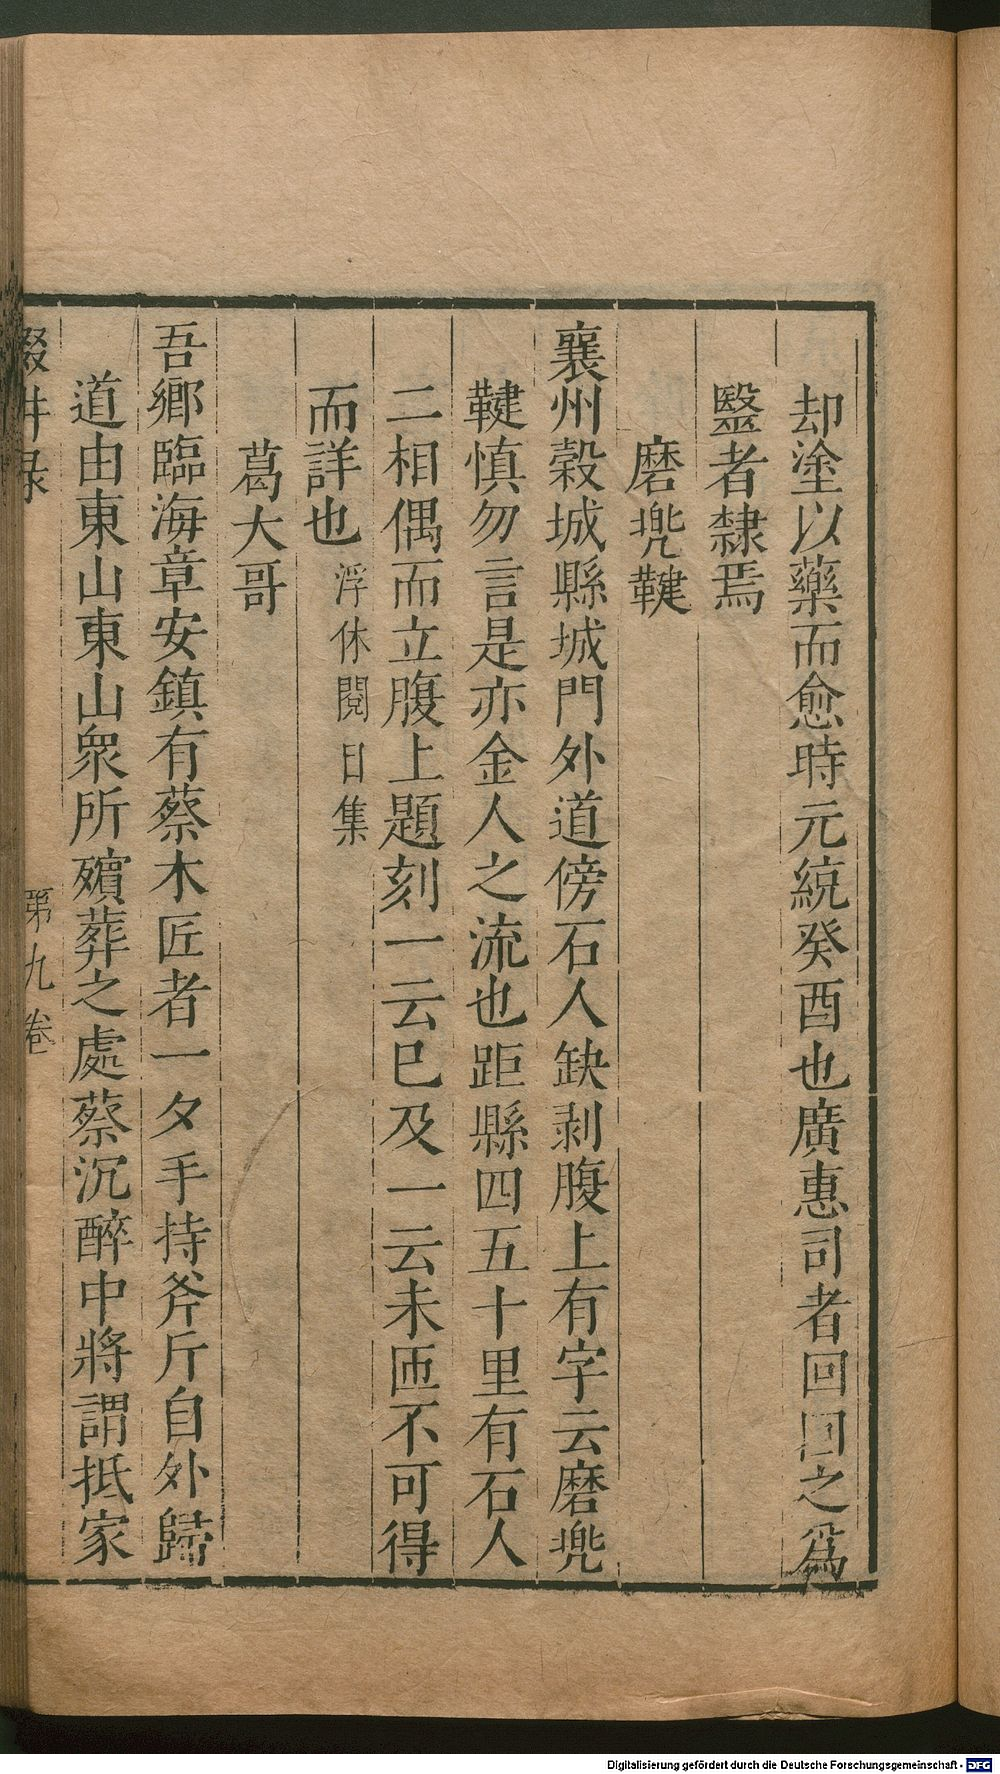 却塗以藥而愈時元統癸酉也廣惠司者回回之爲
醫者隸焉
磨兠鞬
襄州穀城縣城門外道傍石人缺剥腹上有字云磨兠
鞬慎勿言是亦金人之流也距縣四五十里有石人
二相偶而立腹上題刻一云已及一云未匝不可得
而詳也浮休閱日集
葛大哥
吾鄉臨海章安鎮有蔡木匠者一夕手持斧斤自外歸
道由東山東山衆所殯葬之處蔡沉醉中將謂抵家
第九卷
Digitalisierung gefördert durch die Deutsche Forschungsgemeinschaft - DFG